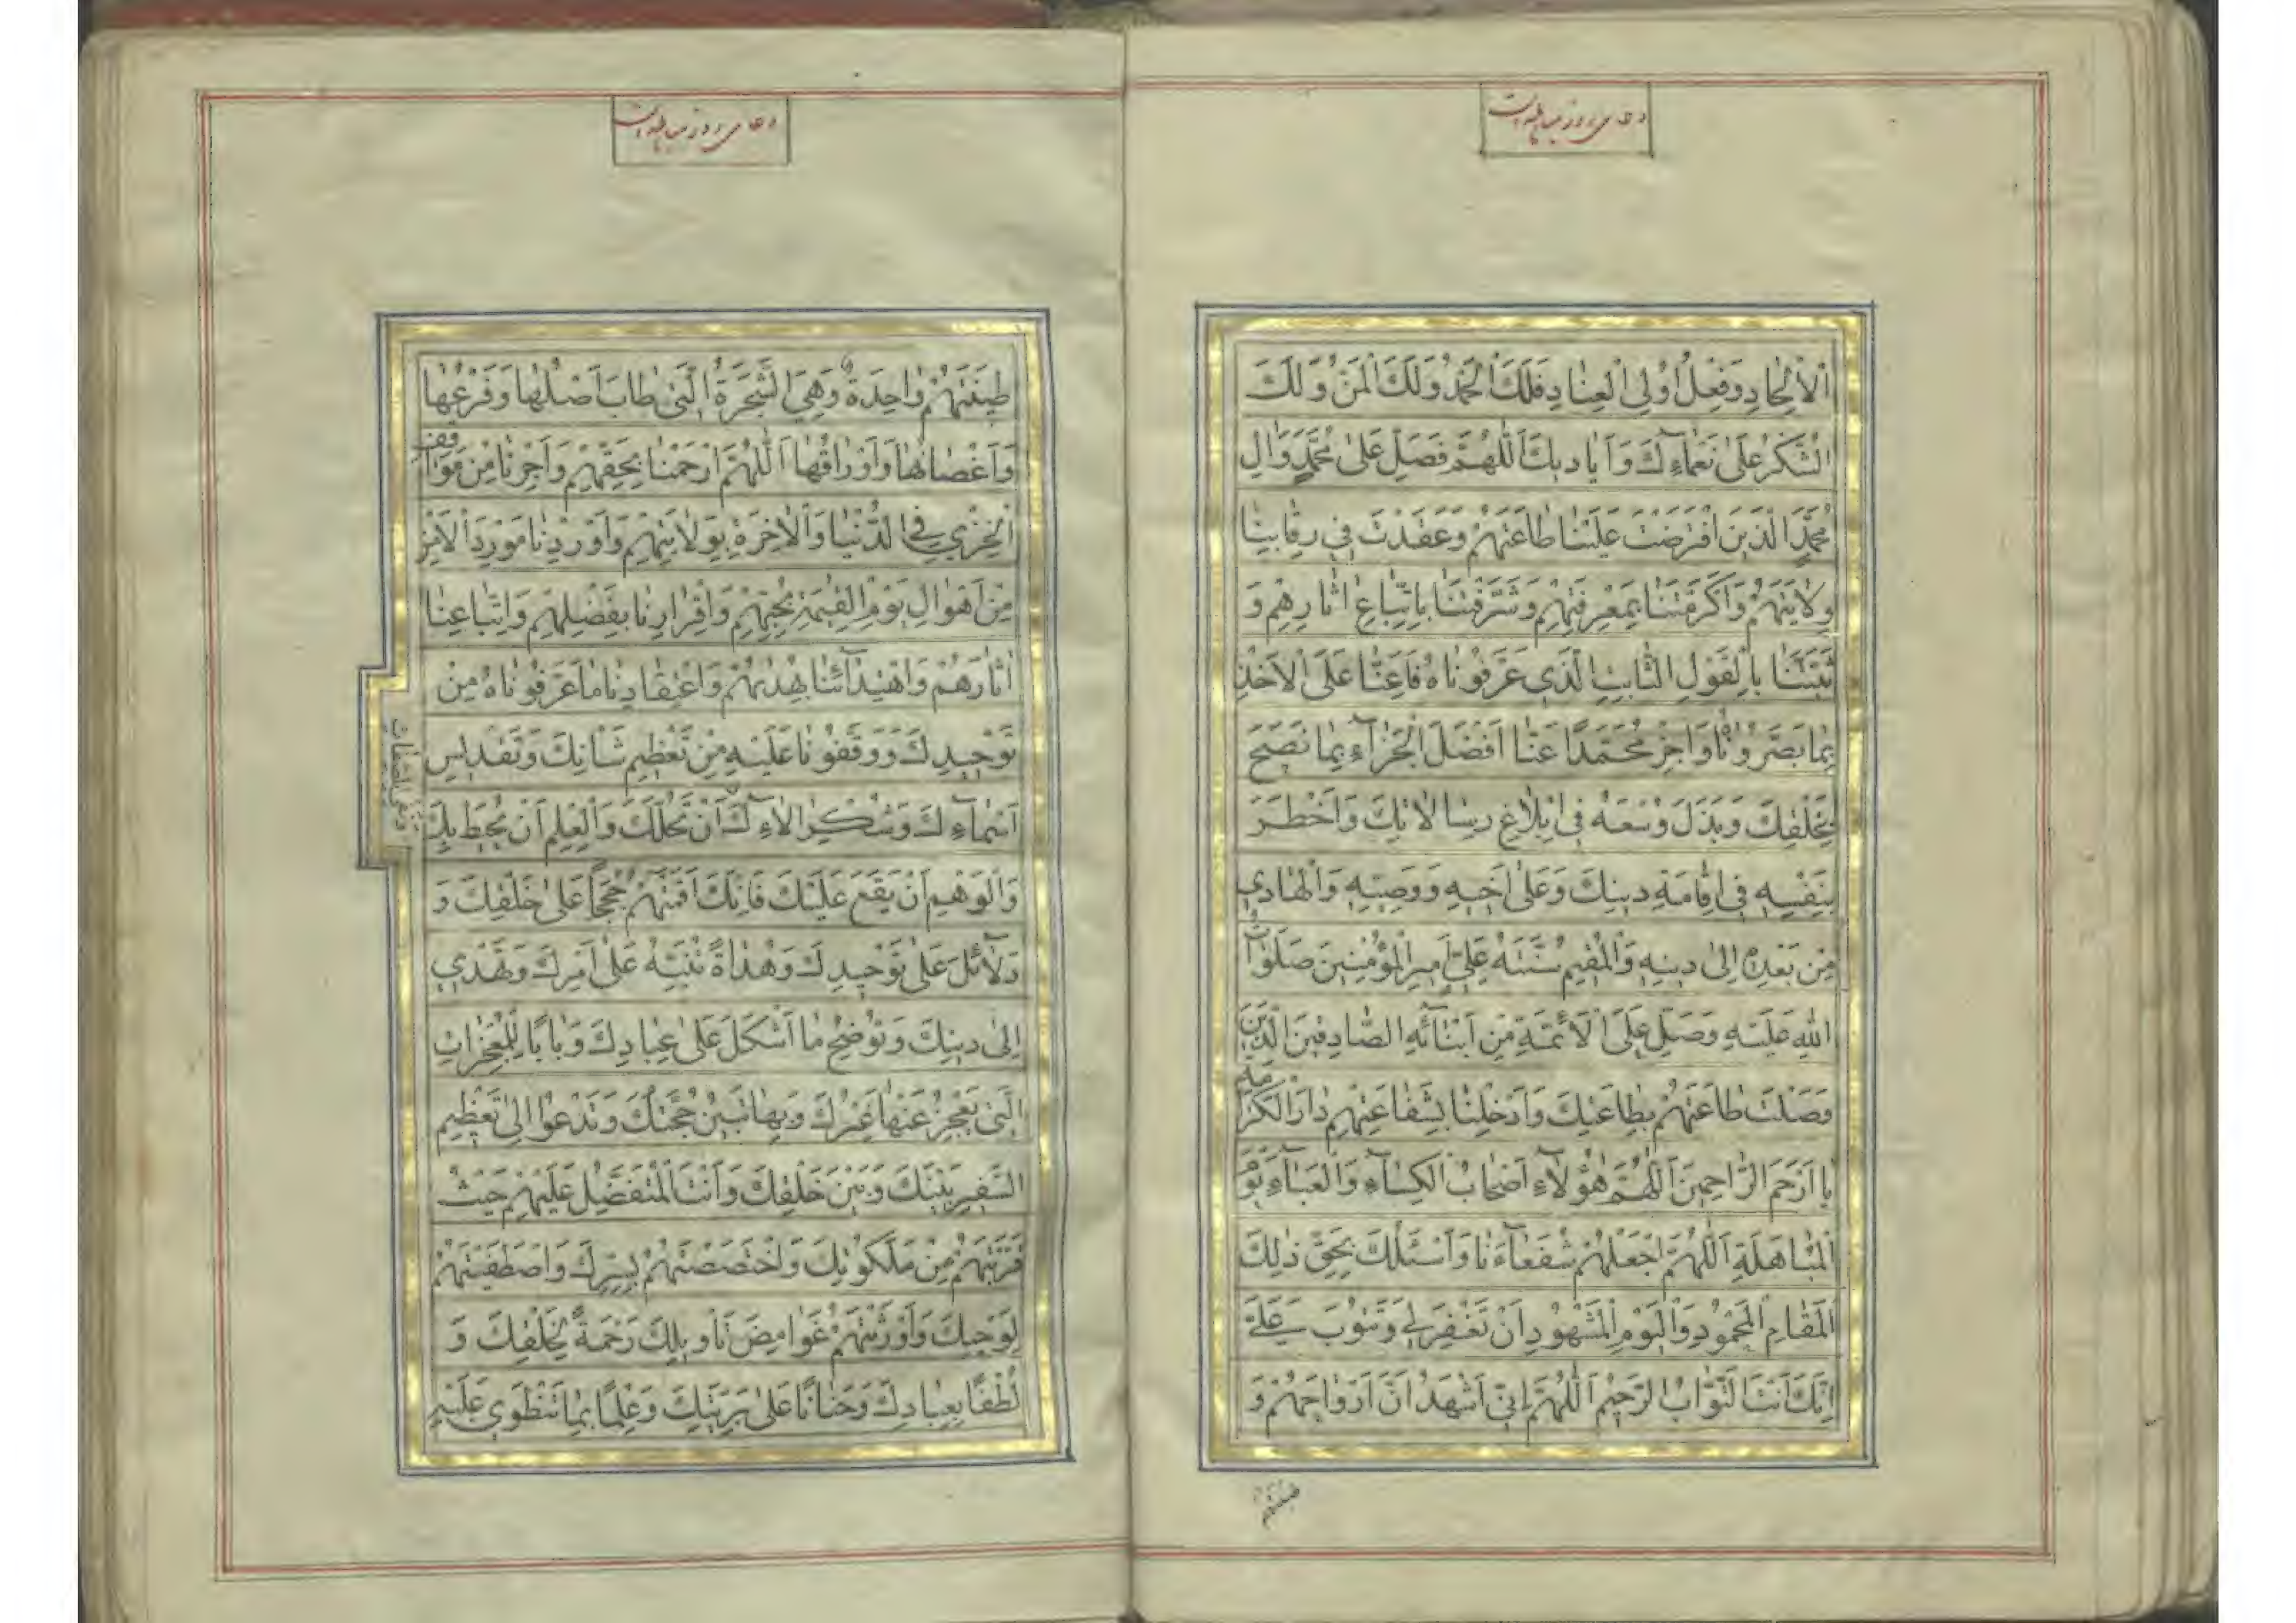 دعای روز مباهله است
اَلْاِلْحادِ وَفِعْلُ اُولِی الْعِنادِ فَلَكَ الْحَمْدُ وَلَكَ الْمَنُّ وَلَكَ
الشُّكْرُ عَلىٰ نَعْمآءِكَ وَاَیادیكَ اَللّٰهُمَّ فَصَلِّ عَلىٰ مُحَمَّدٍ وَآلِ
مُحَمَّدٍ الَّذینَ افْتَرَضْتَ عَلَیْنا طاعَتَهُمْ وَعَقَدْتَ فی رِقابِنا
وِلایَتَهُمْ وَاَكْرَمْتَنا بِمَعْرِفَتِهِمْ وَشَرَّفْتَنا بِاتِّباعِ اٰثارِهِمْ وَ
ثَبَّتَّنا بِالْقَوْلِ الثّابِتِ الَّذی عَرَّفُوناهُ فَاَعِنّا عَلَى الْاَخْذِ
بِما بَصَّرُوناهُ وَاجْزِ مُحَمَّدًا عَنّا اَفْضَلَ الْجَزآءِ بِما نَصَحَ
لِخَلْقِكَ وَبَذَلَ وُسْعَهُ فی اِبْلاغِ رِسالاتِكَ وَاَخْطَرَ
بِنَفْسِهِ فی اِقامَةِ دینِكَ وَعَلىٰ اَخیهِ وَوَصِیِّهِ وَالْهادی
مِنْ بَعْدِهِ اِلىٰ دینِهِ وَالْمُقیمِ سُنَّتَهُ عَلِیٍّ اَمیرِ الْمُؤْمِنینَ صَلَواتُ
اللّٰهِ عَلَیْهِ وَصَلِّ عَلَى الْاَئِمَّةِ مِنْ اَبْنآئِهِ الصّادِقینَ الَّذینَ
وَصَلْتَ طاعَتَهُمْ بِطاعَتِكَ وَاَدْخِلْنا بِشَفاعَتِهِمْ دارَ الْكَرامَةِ
یا اَرْحَمَ الرّاحِمینَ اَللّٰهُمَّ هٰؤُلآءِ اَصْحابُ الْكِسآءِ وَالْعَبآءِ یَوْمَ
الْمُباهَلَةِ اَللّٰهُمَّ اجْعَلْهُمْ شُفَعآءَنا وَاَسْئَلُكَ بِحَقِّ ذٰلِكَ
الْمَقامِ الْمَحْمُودِ وَالْیَوْمِ الْمَشْهُودِ اَنْ تَغْفِرَ لی وَتَتُوبَ عَلَیَّ
اِنَّكَ اَنْتَ التَّوّابُ الرَّحیمُ اَللّٰهُمَّ اِنّی اَشْهَدُ اَنَّ اَرْواحَهُمْ وَ
طینتهم
دعای روز مباهله است
طینَتَهُمْ واحِدَةٌ وَهِیَ الشَّجَرَةُ الَّتی طابَ اَصْلُها وَفَرْعُها
وَاَغْصانُها وَاَوْراقُها اَللّٰهُمَّ ارْحَمْنا بِحَقِّهِمْ وَاَجِرْنا مِنْ مَواقِفِ
الْخِزْیِ فِی الدُّنْیا وَالْاٰخِرَةِ بِوَلایَتِهِمْ وَاَوْرِدْنا مَوْرِدَ الْاَمْنِ
مِنْ اَهْوالِ یَوْمِ الْقِیٰمَةِ بِحُبِّهِمْ وَاِقْرارِنا بِفَضْلِهِمْ وَاتِّباعِنا
اٰثارَهُمْ وَاهْتِدآئِنا بِهُدٰیهُمْ وَاعْتِقادِنا ما عَرَّفُوناهُ مِنْ
تَوْحیدِكَ وَوَقَّفُونا عَلَیْهِ مِنْ تَعْظیمِ شَانِكَ وَتَقْدیسِ
اَسْمآءِكَ وَشُكْرِ اٰلآءِكَ اَنْ تَحُلَّكَ وَالْعِلْمِ اَنْ یُحیطَ بِكَ
وَنَفْیِ الصِّفاتِ
وَالْوَهْمِ اَنْ یَقَعَ عَلَیْكَ فَاِنَّكَ اَقَمْتَهُمْ حُجَجًا عَلىٰ خَلْقِكَ وَ
دَلآئِلَ عَلىٰ تَوْحیدِكَ وَهُداةً تُنَبِّهُ عَلىٰ اَمْرِكَ وَتَهْدی
اِلىٰ دینِكَ وَتُوضِحُ ما اَشْكَلَ عَلىٰ عِبادِكَ وَبابًا لِلْمُعْجِزاتِ
الَّتی یَعْجِزُ عَنْها غَیْرُكَ وَبِها تَبینُ حُجَّتُكَ وَتَدْعُوا اِلىٰ تَعْظیمِ
السَّفیرِ بَیْنَكَ وَبَیْنَ خَلْقِكَ وَاَنْتَ الْمُتَفَضِّلُ عَلَیْهِمْ حَیْثُ
قَرَّبْتَهُمْ مِنْ مَلَكُوتِكَ وَاخْتَصَصْتَهُمْ بِسِرِّكَ وَاصْطَفَیْتَهُمْ
لِوَحْیِكَ وَاَوْرَثْتَهُمْ غَوامِضَ تَاْویلِكَ رَحْمَةً لِخَلْقِكَ وَ
لُطْفًا بِعِبادِكَ وَحَنانًا عَلىٰ بَرِیَّتِكَ وَعِلْمًا بِما تَنْطَوی عَلَیْهِ